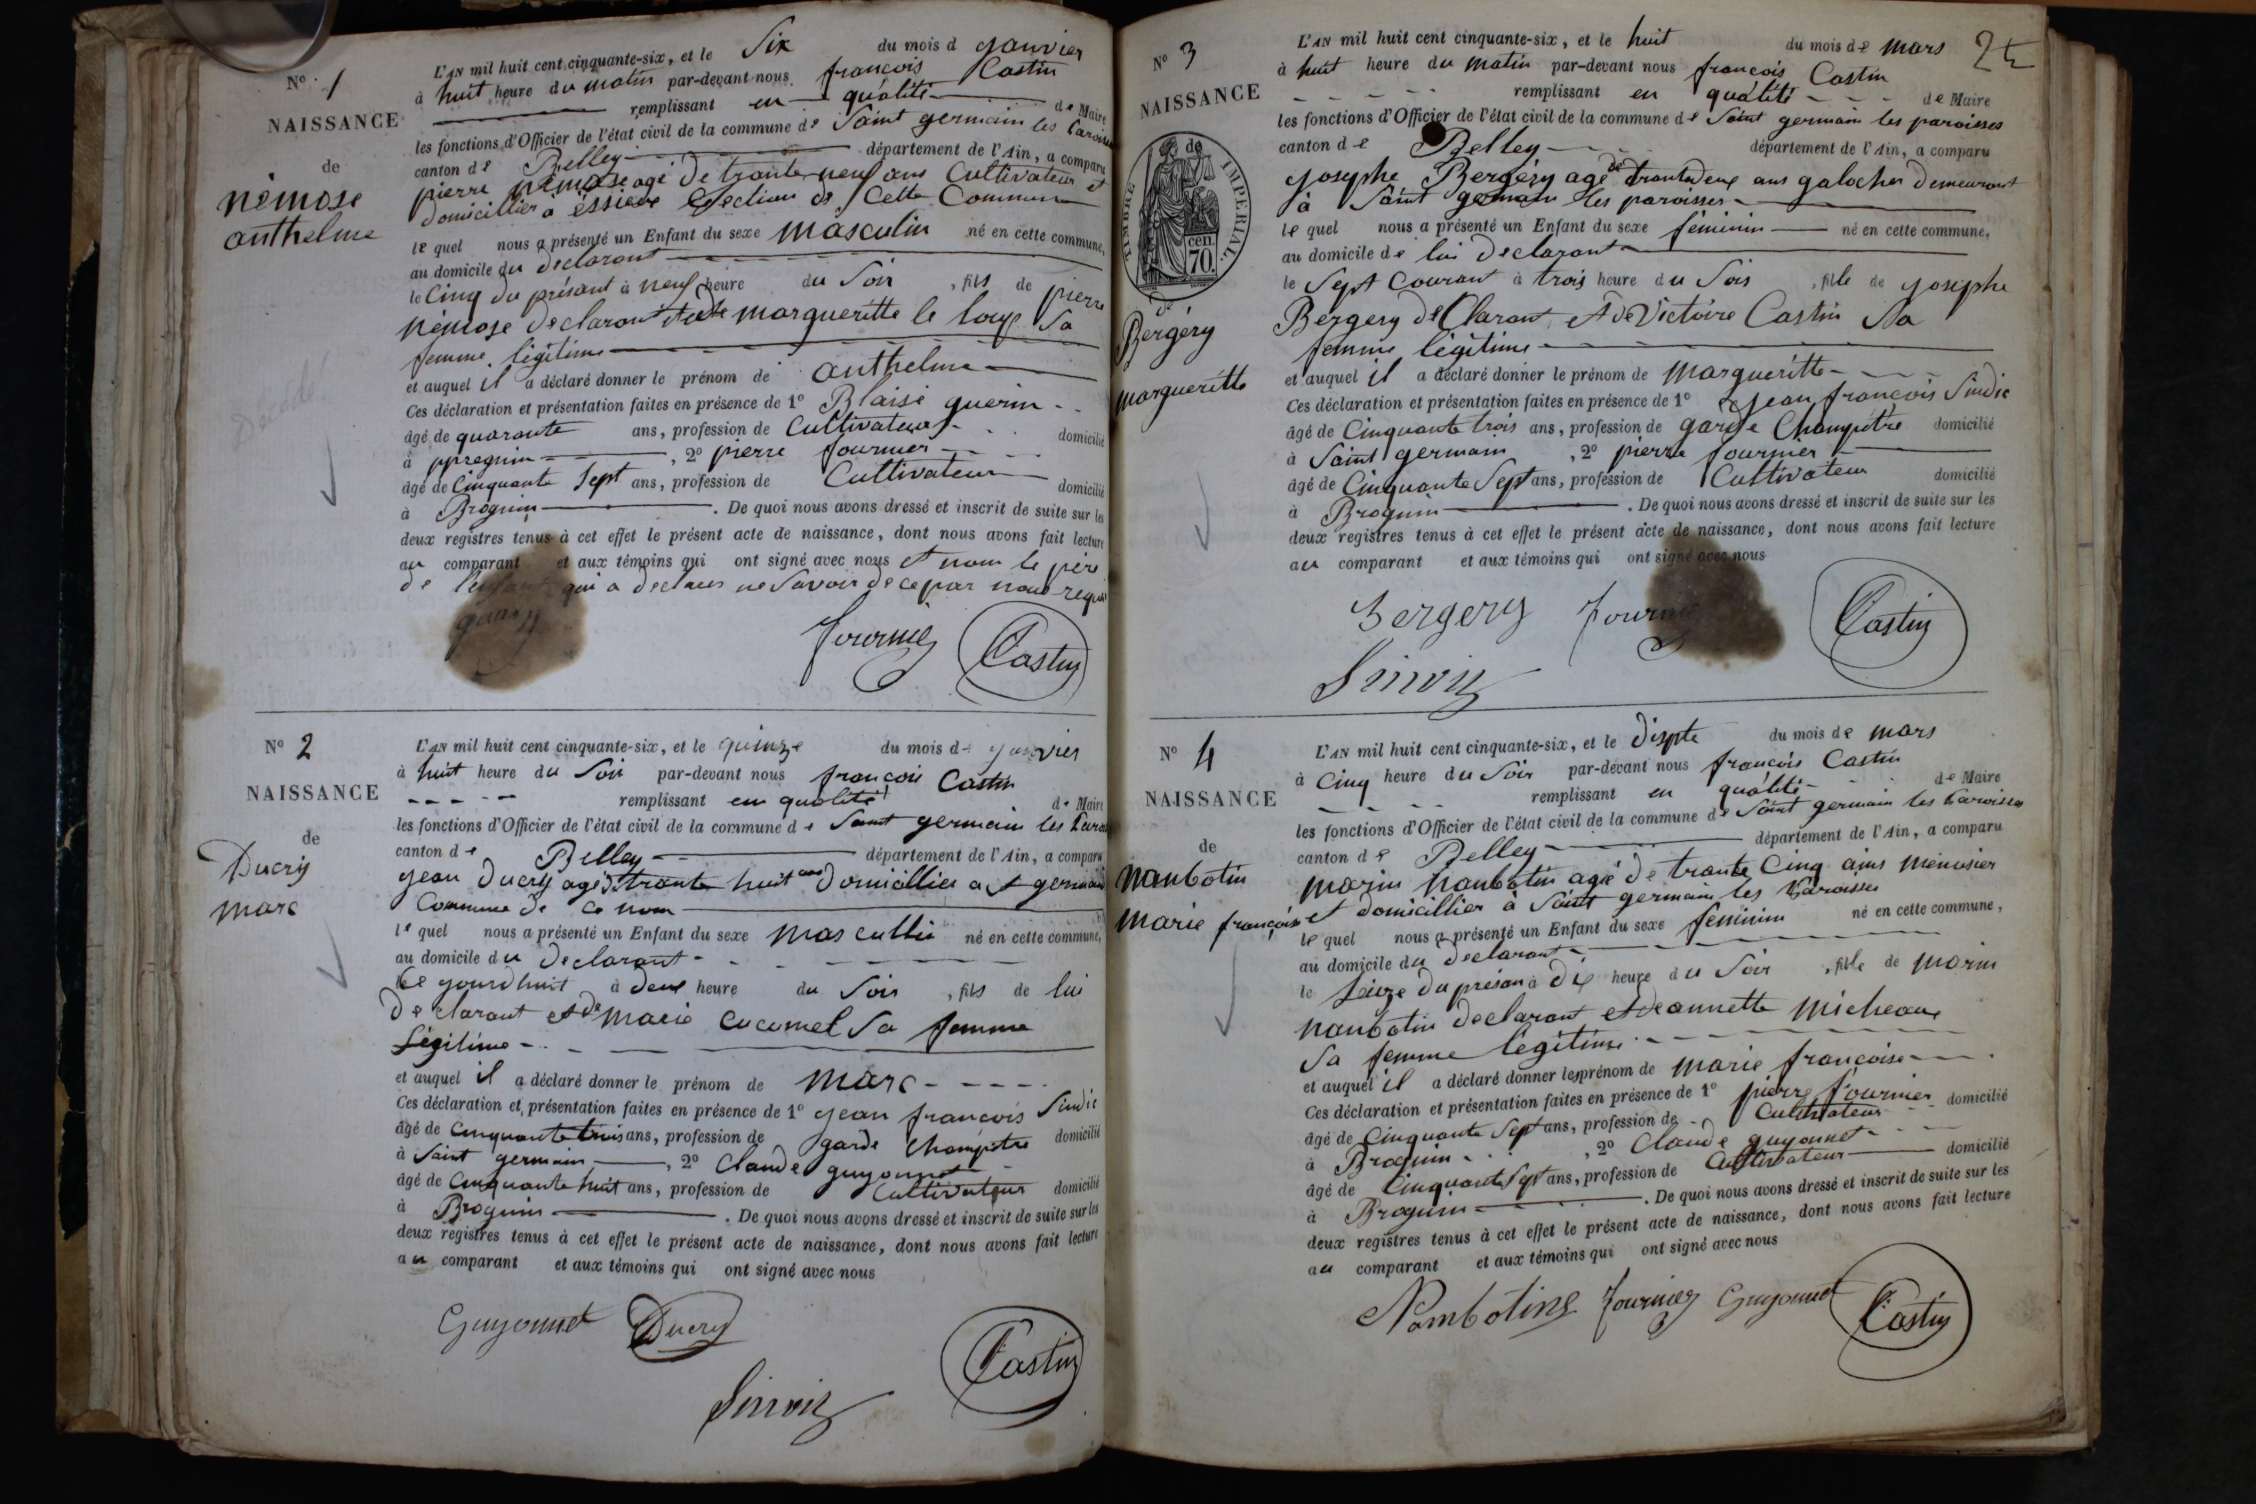 N° 1
NAISSANCE
de
némose
anthelme
L'AN mil huit cent cinquante-six, et le Six du mois d janvier
à huit heure du matin par-devant nous françois Castin
remplissant en qualité de Maire
les fonctions d'Officier de l'état civil de la commune de Saint germain les Paroisses
canton de Belley département de l'Ain, a comparu
pierre némose agé de trante neuf ans Cultivateur et
domicillier à éssieux Section de Cette Commune
le quel nous a présenté un Enfant du sexe masculin né en cette commune,
au domicile du declarant
le Cinq du présant à neuf heure du Soir , fils de pierre
némose declarant et de margueritte le loup Sa
femme légitime
et auquel il a déclaré donner le prénom de anthelme
Ces déclaration et présentation faites en présence de 1° Blaise guerin
âgé de quarante ans, profession de Cultivateur domicilié
à ppregnin , 2° pierre fournier
âgé de Cinquante Sept ans, profession de Cultivateur domicilié
à Brognin . De quoi nous avons dressé et inscrit de suite sur les
deux registres tenus à cet effet le présent acte de naissance, dont nous avons fait lecture
au comparant et aux témoins qui ont signé avec nous et nom le père
de l'enfant qui a declaré ne Savoir de ce par nous requi
fournier Castin
N° 2
NAISSANCE
de
Ducry
marc
L'AN mil huit cent cinquante-six, et le quinze du mois d janvier
à huit heure du Soir par-devant nous françois Castin
remplissant en qualité de Maire
les fonctions d'Officier de l'état civil de la commune de Saint germain les Parois
canton de Belley département de l'Ain, a comparu
jean Ducry agé de trante huit ans domicillier a st germain
Commune de ce nom
le quel nous a présenté un Enfant du sexe mascullin né en cette commune,
au domicile du declarant
le jourdhuit à deux heure du Soir , fils de lui
declarant et de marie cocomel Sa femme
légitime
et auquel il a déclaré donner le prénom de marc
Ces déclaration et présentation faites en présence de 1° jean francois Sindic
âgé de cinquante trois ans, profession de garde champetre domicilié
à Saint germain , 2° Claude guyonnet
âgé de Cinquante huit ans, profession de Cultivateur domicilié
à Brognin . De quoi nous avons dressé et inscrit de suite sur les
deux registres tenus à cet effet le présent acte de naissance, dont nous avons fait lecture
au comparant et aux témoins qui ont signé avec nous
Guyonnet Ducry
Castin
24
N° 3
NAISSANCE
TIMBRE IMPERIAL
70 cen.
de
Bergéry
margueritte
L'AN mil huit cent cinquante-six, et le huit du mois de mars
à huit heure du matin par-devant nous françois Castin
remplissant en qualité de Maire
les fonctions d'Officier de l'état civil de la commune de Saint germain les paroisses
canton de Belley département de l'Ain, a comparu
josephe Bergéry agé de trantedeux ans galocher demeurant
à Saint germain les paroisses
le quel nous a présenté un Enfant du sexe féminin né en cette commune,
au domicile de lui declarant
le Sept Courant à trois heure du Soir , fille de josephe
Bergery déClarant et de Victoire Castin Sa
femme légitime
et auquel il a déclaré donner le prénom de margueritte
Ces déclaration et présentation faites en présence de 1° jean françois Sindic
âgé de Cinquante trois ans, profession de garde Champétre domicilié
à Saint germain , 2° pierre fournier
âgé de Cinquante Sept ans, profession de Cultivateur domicilié
à Brognin . De quoi nous avons dressé et inscrit de suite sur les
deux registres tenus à cet effet le présent acte de naissance, dont nous avons fait lecture
au comparant et aux témoins qui ont signé avec nous
Bergery Castin
N° 4
NAISSANCE
de
nanbotin
marie françoise
L'AN mil huit cent cinquante-six, et le dispte du mois de mars
à Cinq heure du Soir par-devant nous françois Castin
remplissant en qualité de Maire
les fonctions d'Officier de l'état civil de la commune de Saint germain les Paroisses
canton de Belley département de l'Ain, a comparu
marin nanbotin agé de trante Cinq ains menusier
et domicillier à Saint germain les Paroisses
le quel nous a présenté un Enfant du sexe feminim né en cette commune,
au domicile du declarant
le Seize du présan à dix heure du Soir , fille de marin
nanbotin declarant et jeannette micheaux
Sa femme légitime
et auquel il a déclaré donner le prénom de marie françoise
Ces déclaration et présentation faites en présence de 1° pierre fournier
âgé de Cinquante Sept ans, profession de Cultivateur domicilié
à Brognin , 2° Claude guyonnet
âgé de Cinquante Sept ans, profession de Cultivateur domicilié
à Brognin . De quoi nous avons dressé et inscrit de suite sur les
deux registres tenus à cet effet le présent acte de naissance, dont nous avons fait lecture
au comparant et aux témoins qui ont signé avec nous
Nambotin fournier Guyonnet Castin